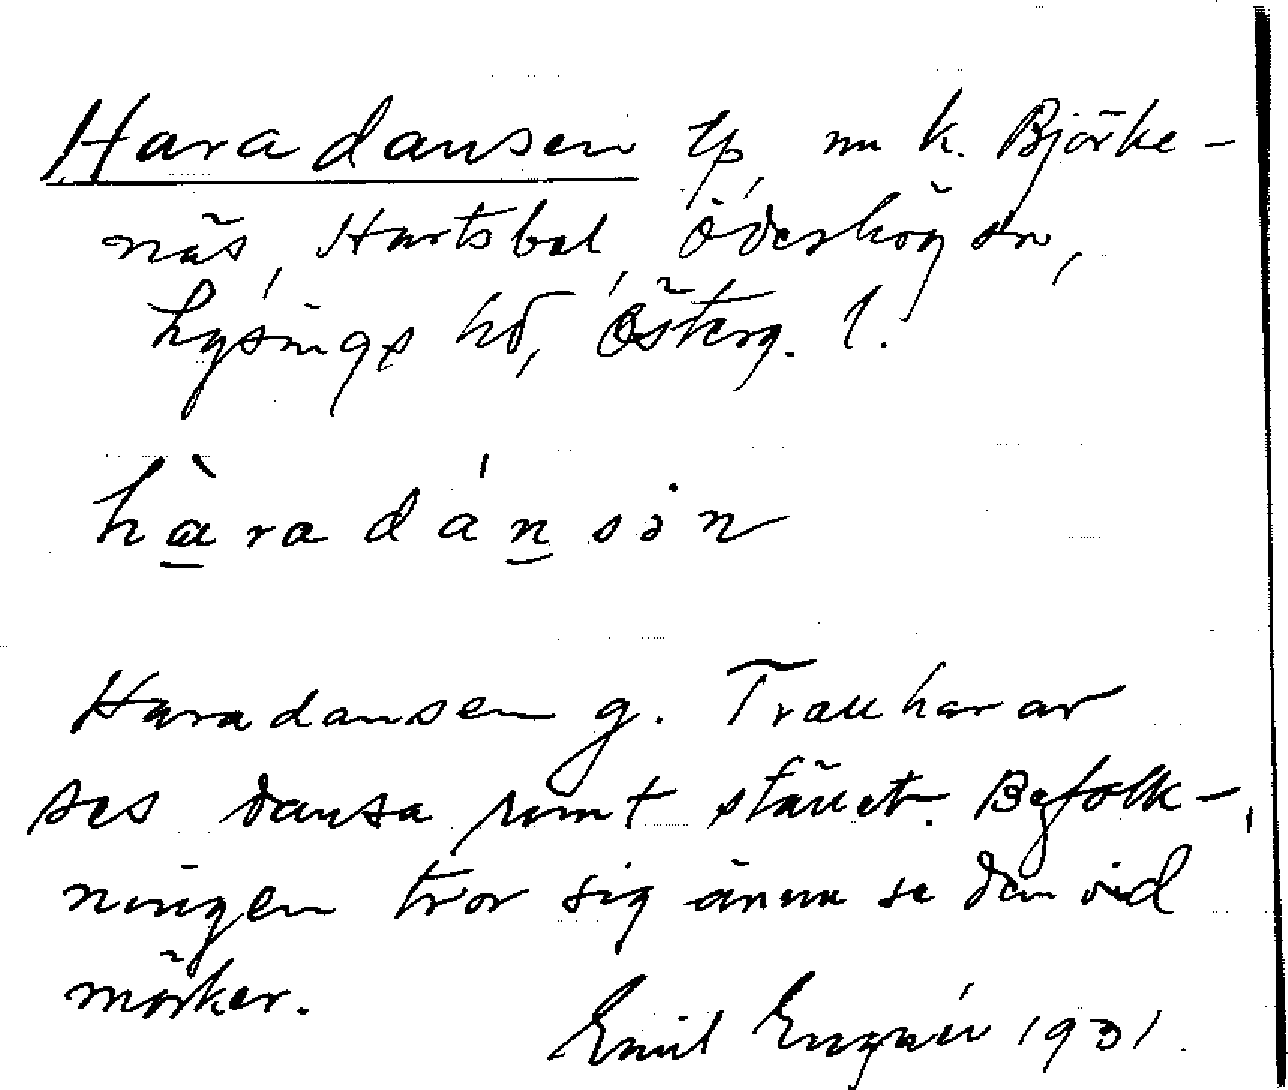 Haradansen tp nu k. Björke-
näs, Hartsbol, Ödeshög sn,
Lysings hd, Österg. l.
hàradánsin
Haradansen g. Trollharar
ses dansa runt stället. Befolk-
ningen tror sig ännu se dem vid
mörker.
Emil 1931.